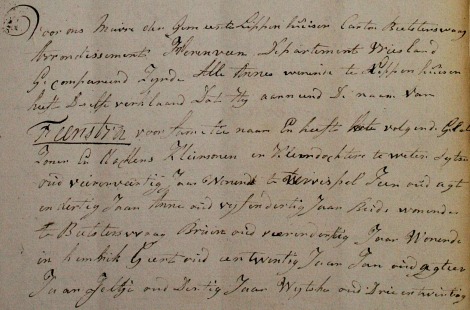 Voor ons Maire der Gemeente Lippenhuisen Canton Beetsterswaag
Arrondissement Heerenveen Departement Vriesland
Gecompareerd zynde Alle Annes wonende te Lippenhuisen
heeft Deselve verklaard Dat Hy aanneemd De naam van
Feenstra voor famielie naam En heeft
Zonen En Dochters Kleinsonen en Kleindochters te weten Sytse
oud vierenveertig Jaar Wonende te Terwispel Jeen oud agt
en dertig Jaar Anne oud vyfendertig Jaar Beide wonende
te Beetsterswaag Brugt oud vierendertig Jaar Wonende
in hemrik Geert oud eentwintig Jaar Jan oud agtien
Jaar Jeltje oud Dertig Jaar Wytske oud Drieentwintig